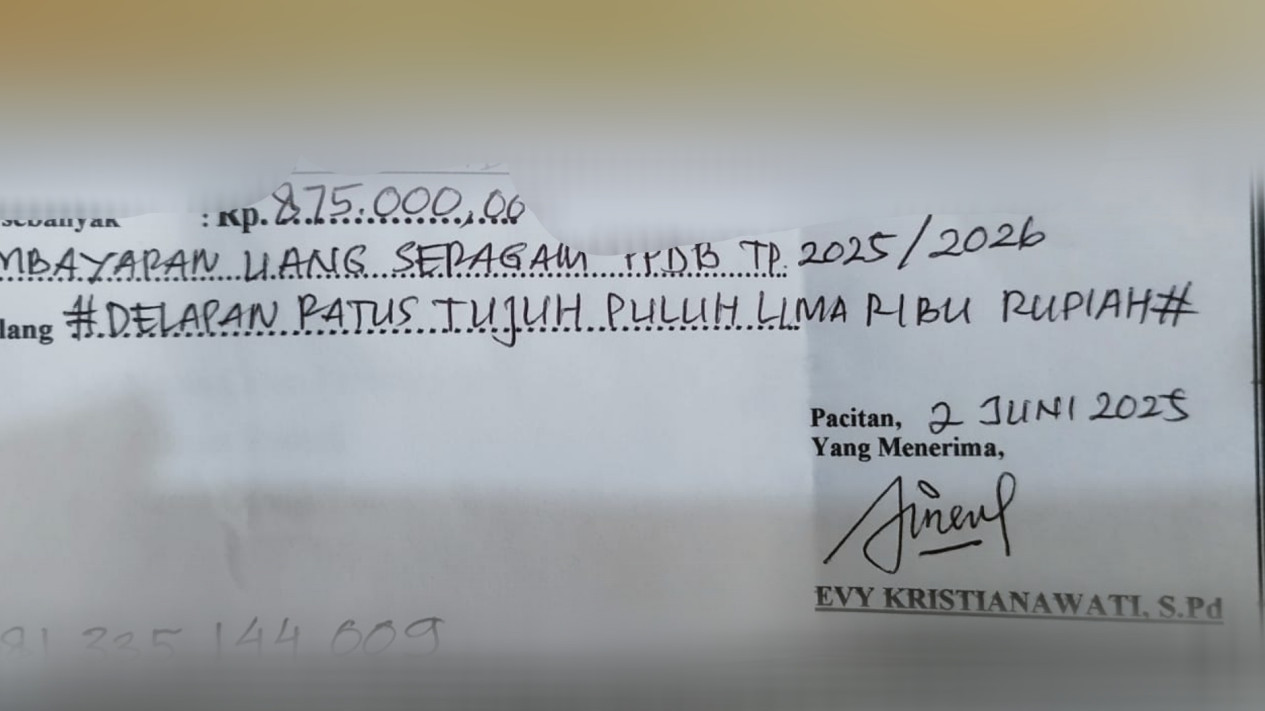 sebanyak : Rp. 875.000,00
MBAYARAN UANG SERAGAM PPDB TP. 2025/2026
lang #DELAPAN RATUS TUJUH PULUH LIMA RIBU RUPIAH#
Pacitan, 2 JUNI 2025
Yang Menerima,
EVY KRISTIANAWATI, S.Pd